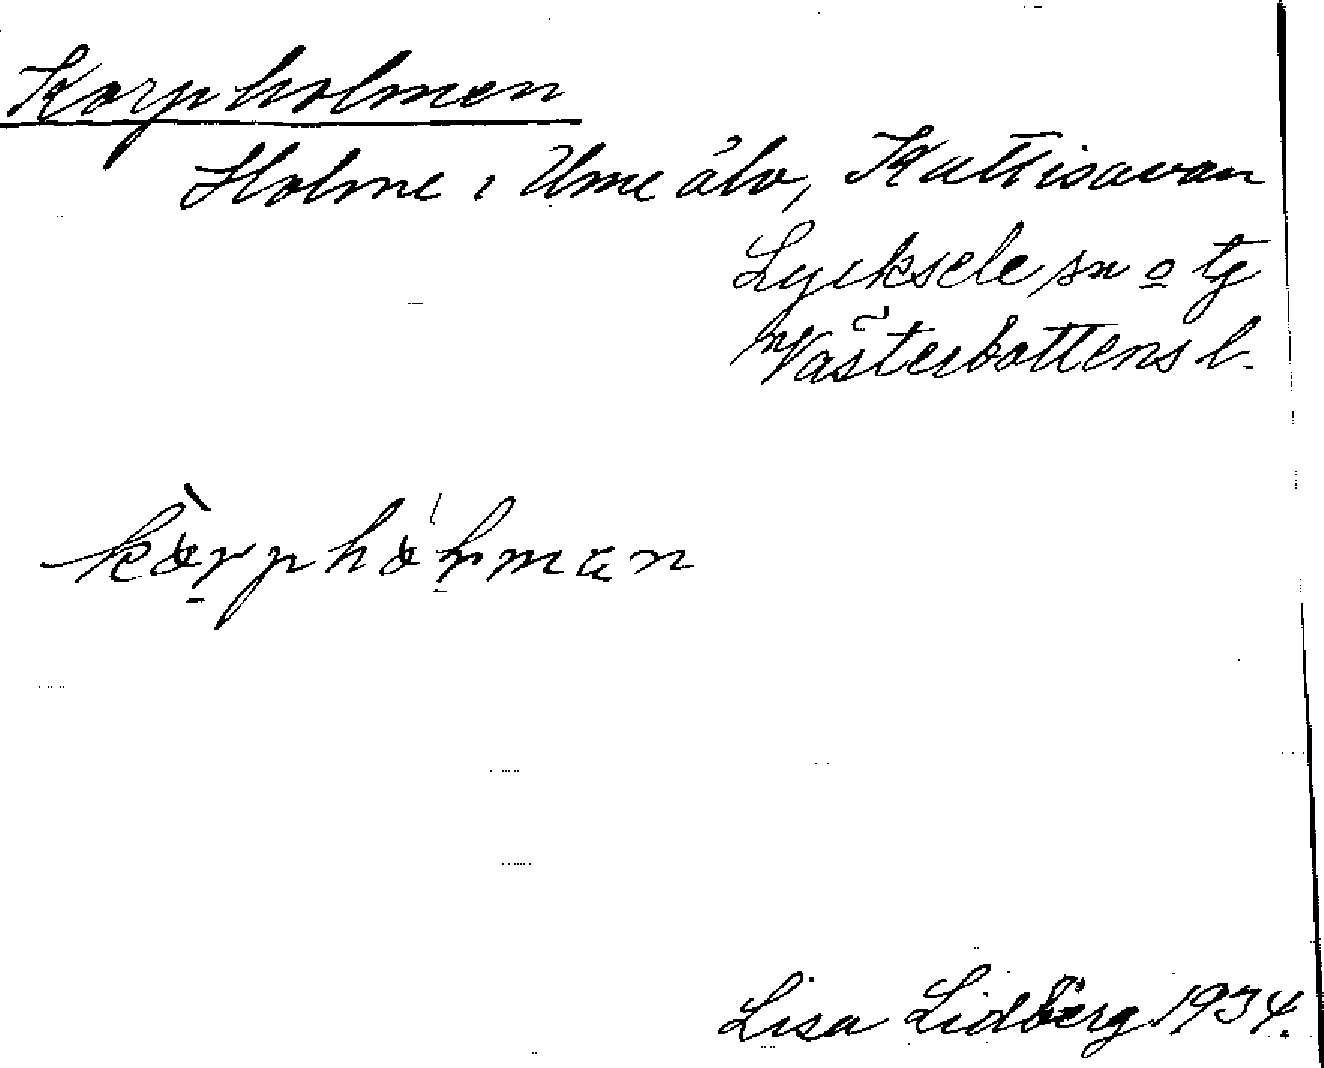 Korpholmen
Holme i Ume älv, Kattisavan
Lycksele sn o tg
Västerbottens l.
kòrphólman
Lisa Lidberg 1934.